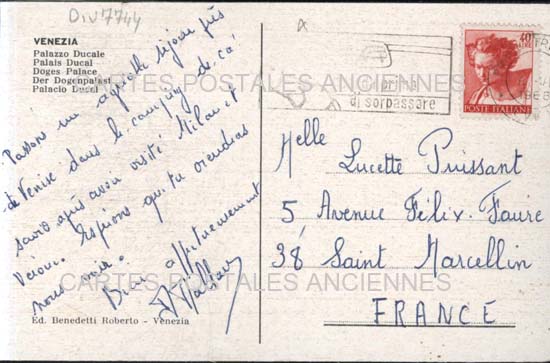 DIV7744
VENEZIA
Palazzo Ducale
Palais Ducal
Doges Palace
Der Dogenpalast
Palacio Ducal
Passons un agréable séjour près
de Venise dans le camping de ca'
savio après avoir visité Milan et
Vérone. Espérons que tu viendras
nous voir.
Bien affectueusement
Ed. Benedetti Roberto - Venezia
prima
di sorpassare
40
LIRE
POSTE ITALIANE
Melle Lucette Puissant
5 Avenue Félix-Faure
38 Saint Marcellin
FRANCE
CARTES POSTALES ANCIENNES
CARTES POSTALES ANCIENNES